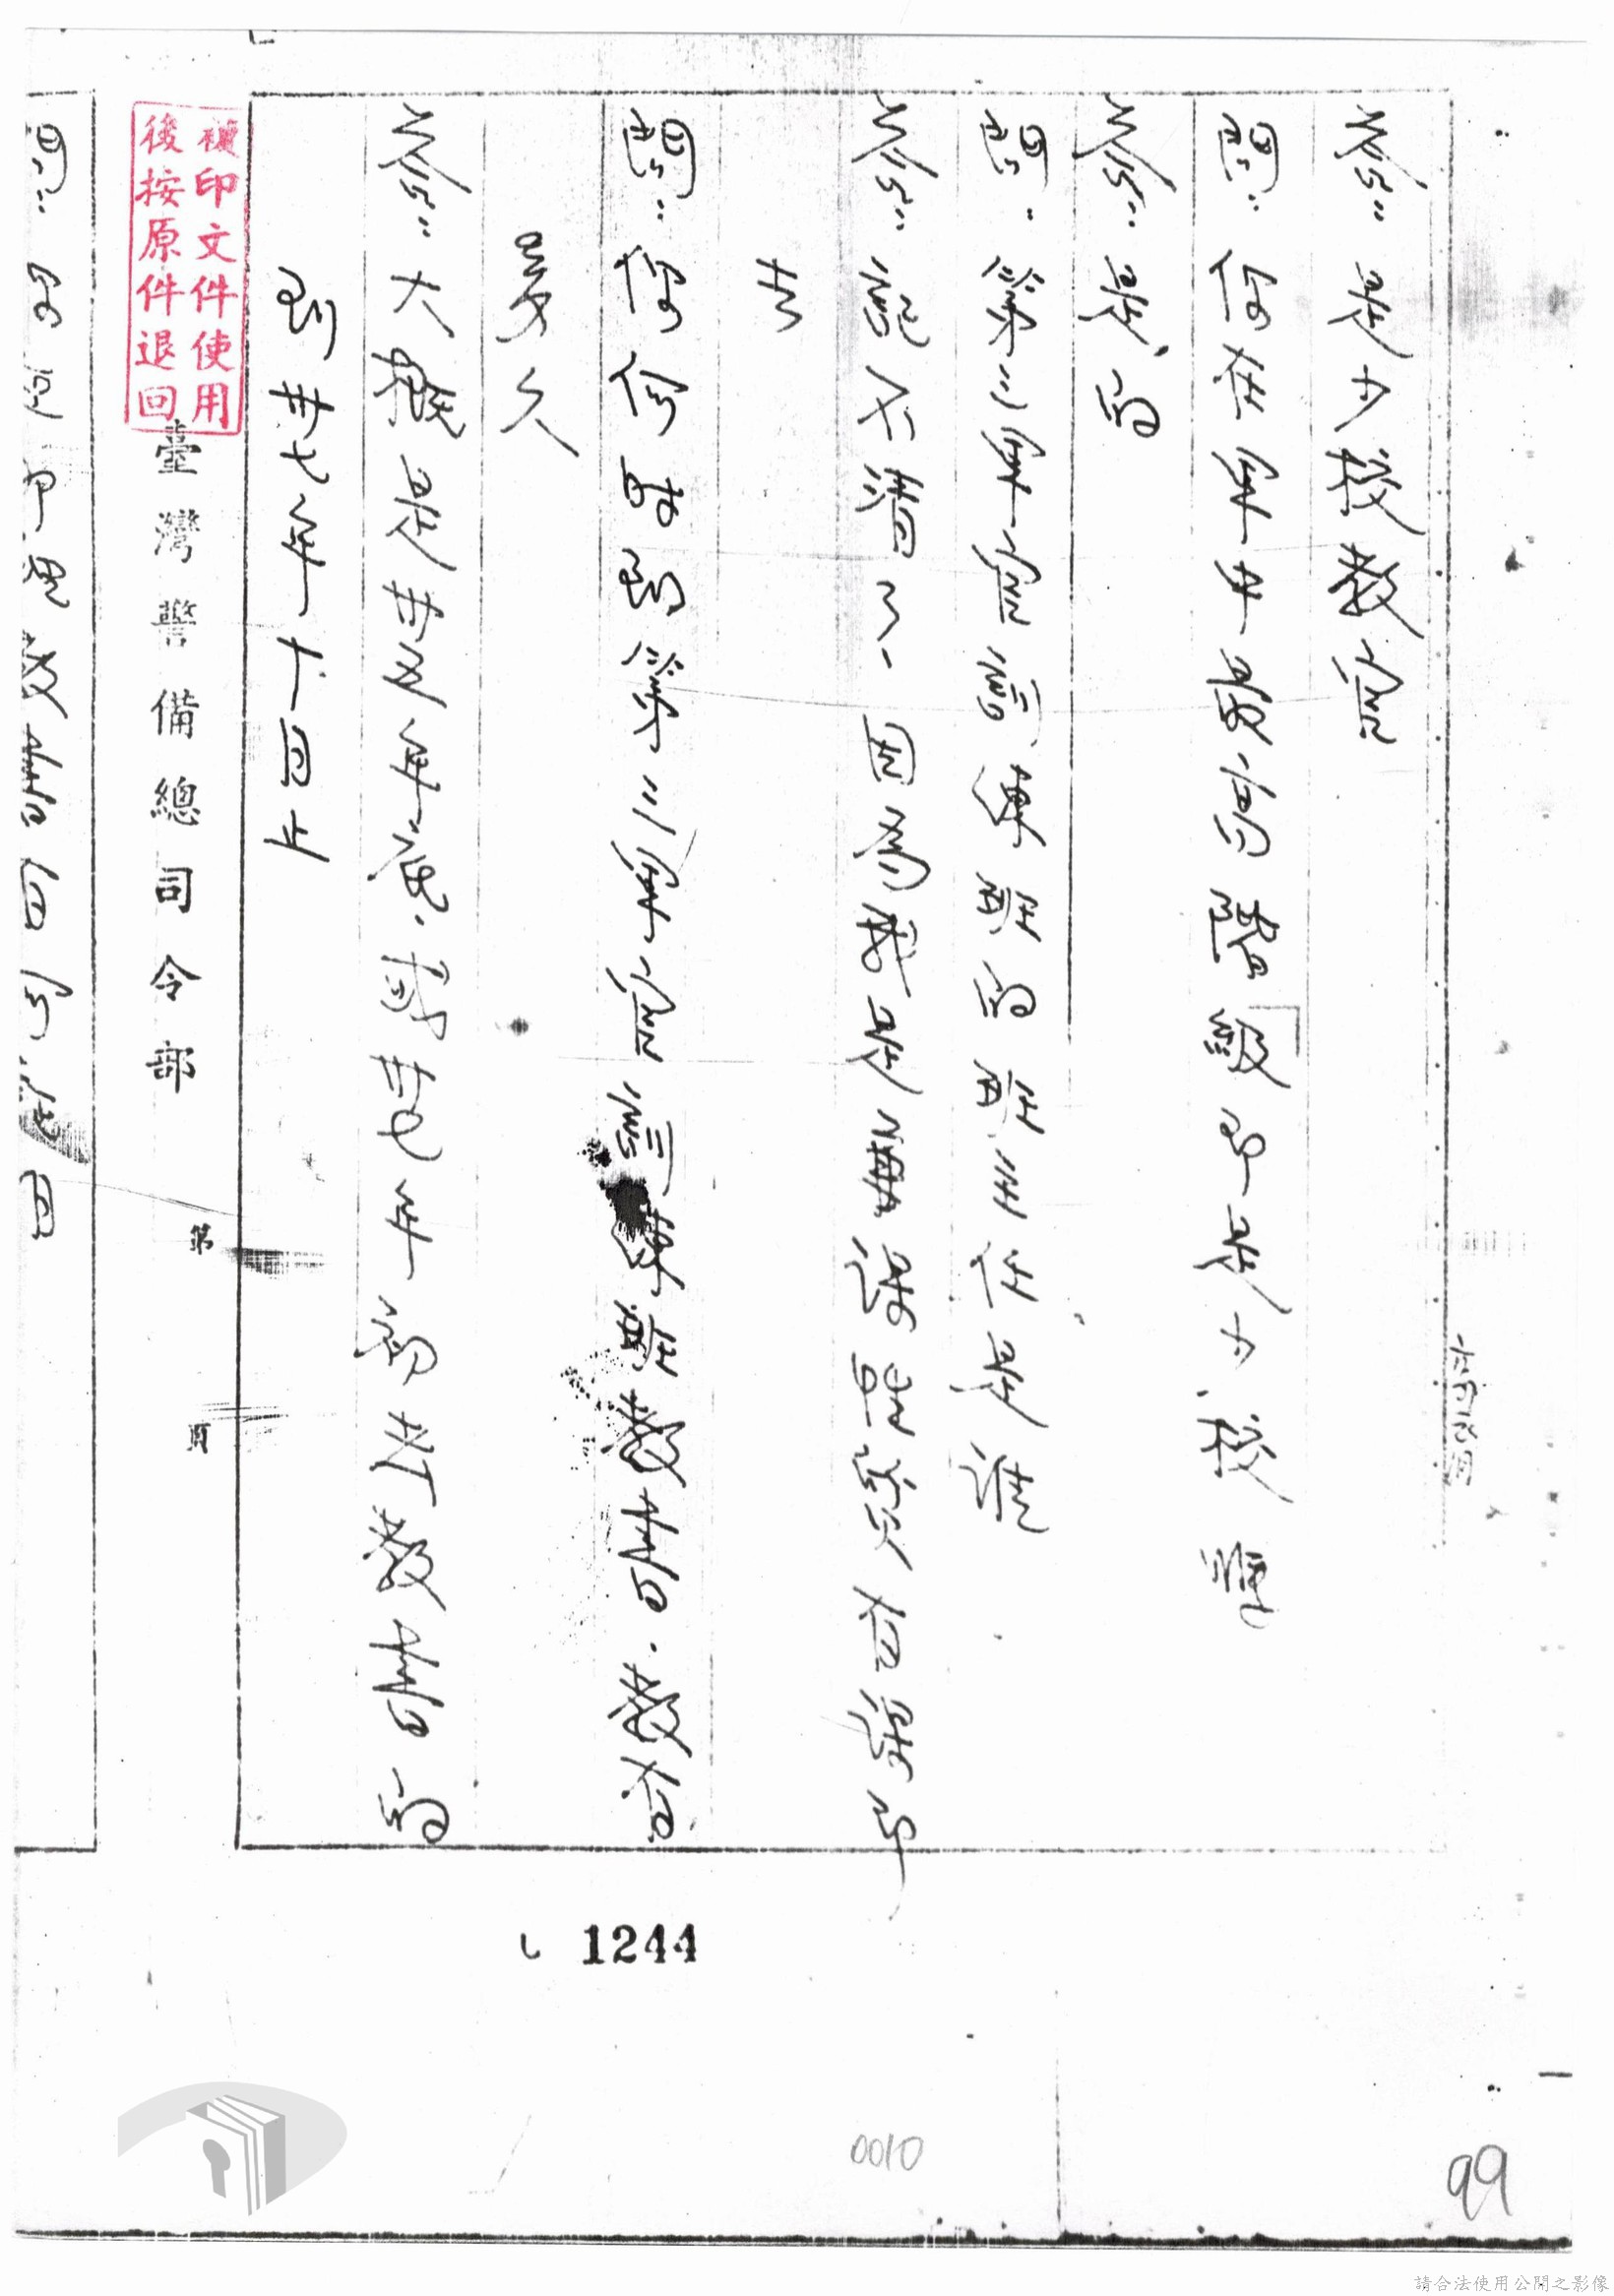 答：是少校教官
問：你在軍中最高階級即是少校嗎
答：是的
問：第三軍官訓練班的班主任是誰
答：記不清了，因為我是兼課性質有課即
去
問：你何時到第三軍官訓練班教書．教有
多久
答：大概是卅五年底，或卅七年初去教書的
到卅七年十月止
臺灣警備總司令部
第 頁
複印文件使用
後按原件退回
1244
0010
99
請合法使用公開之影像